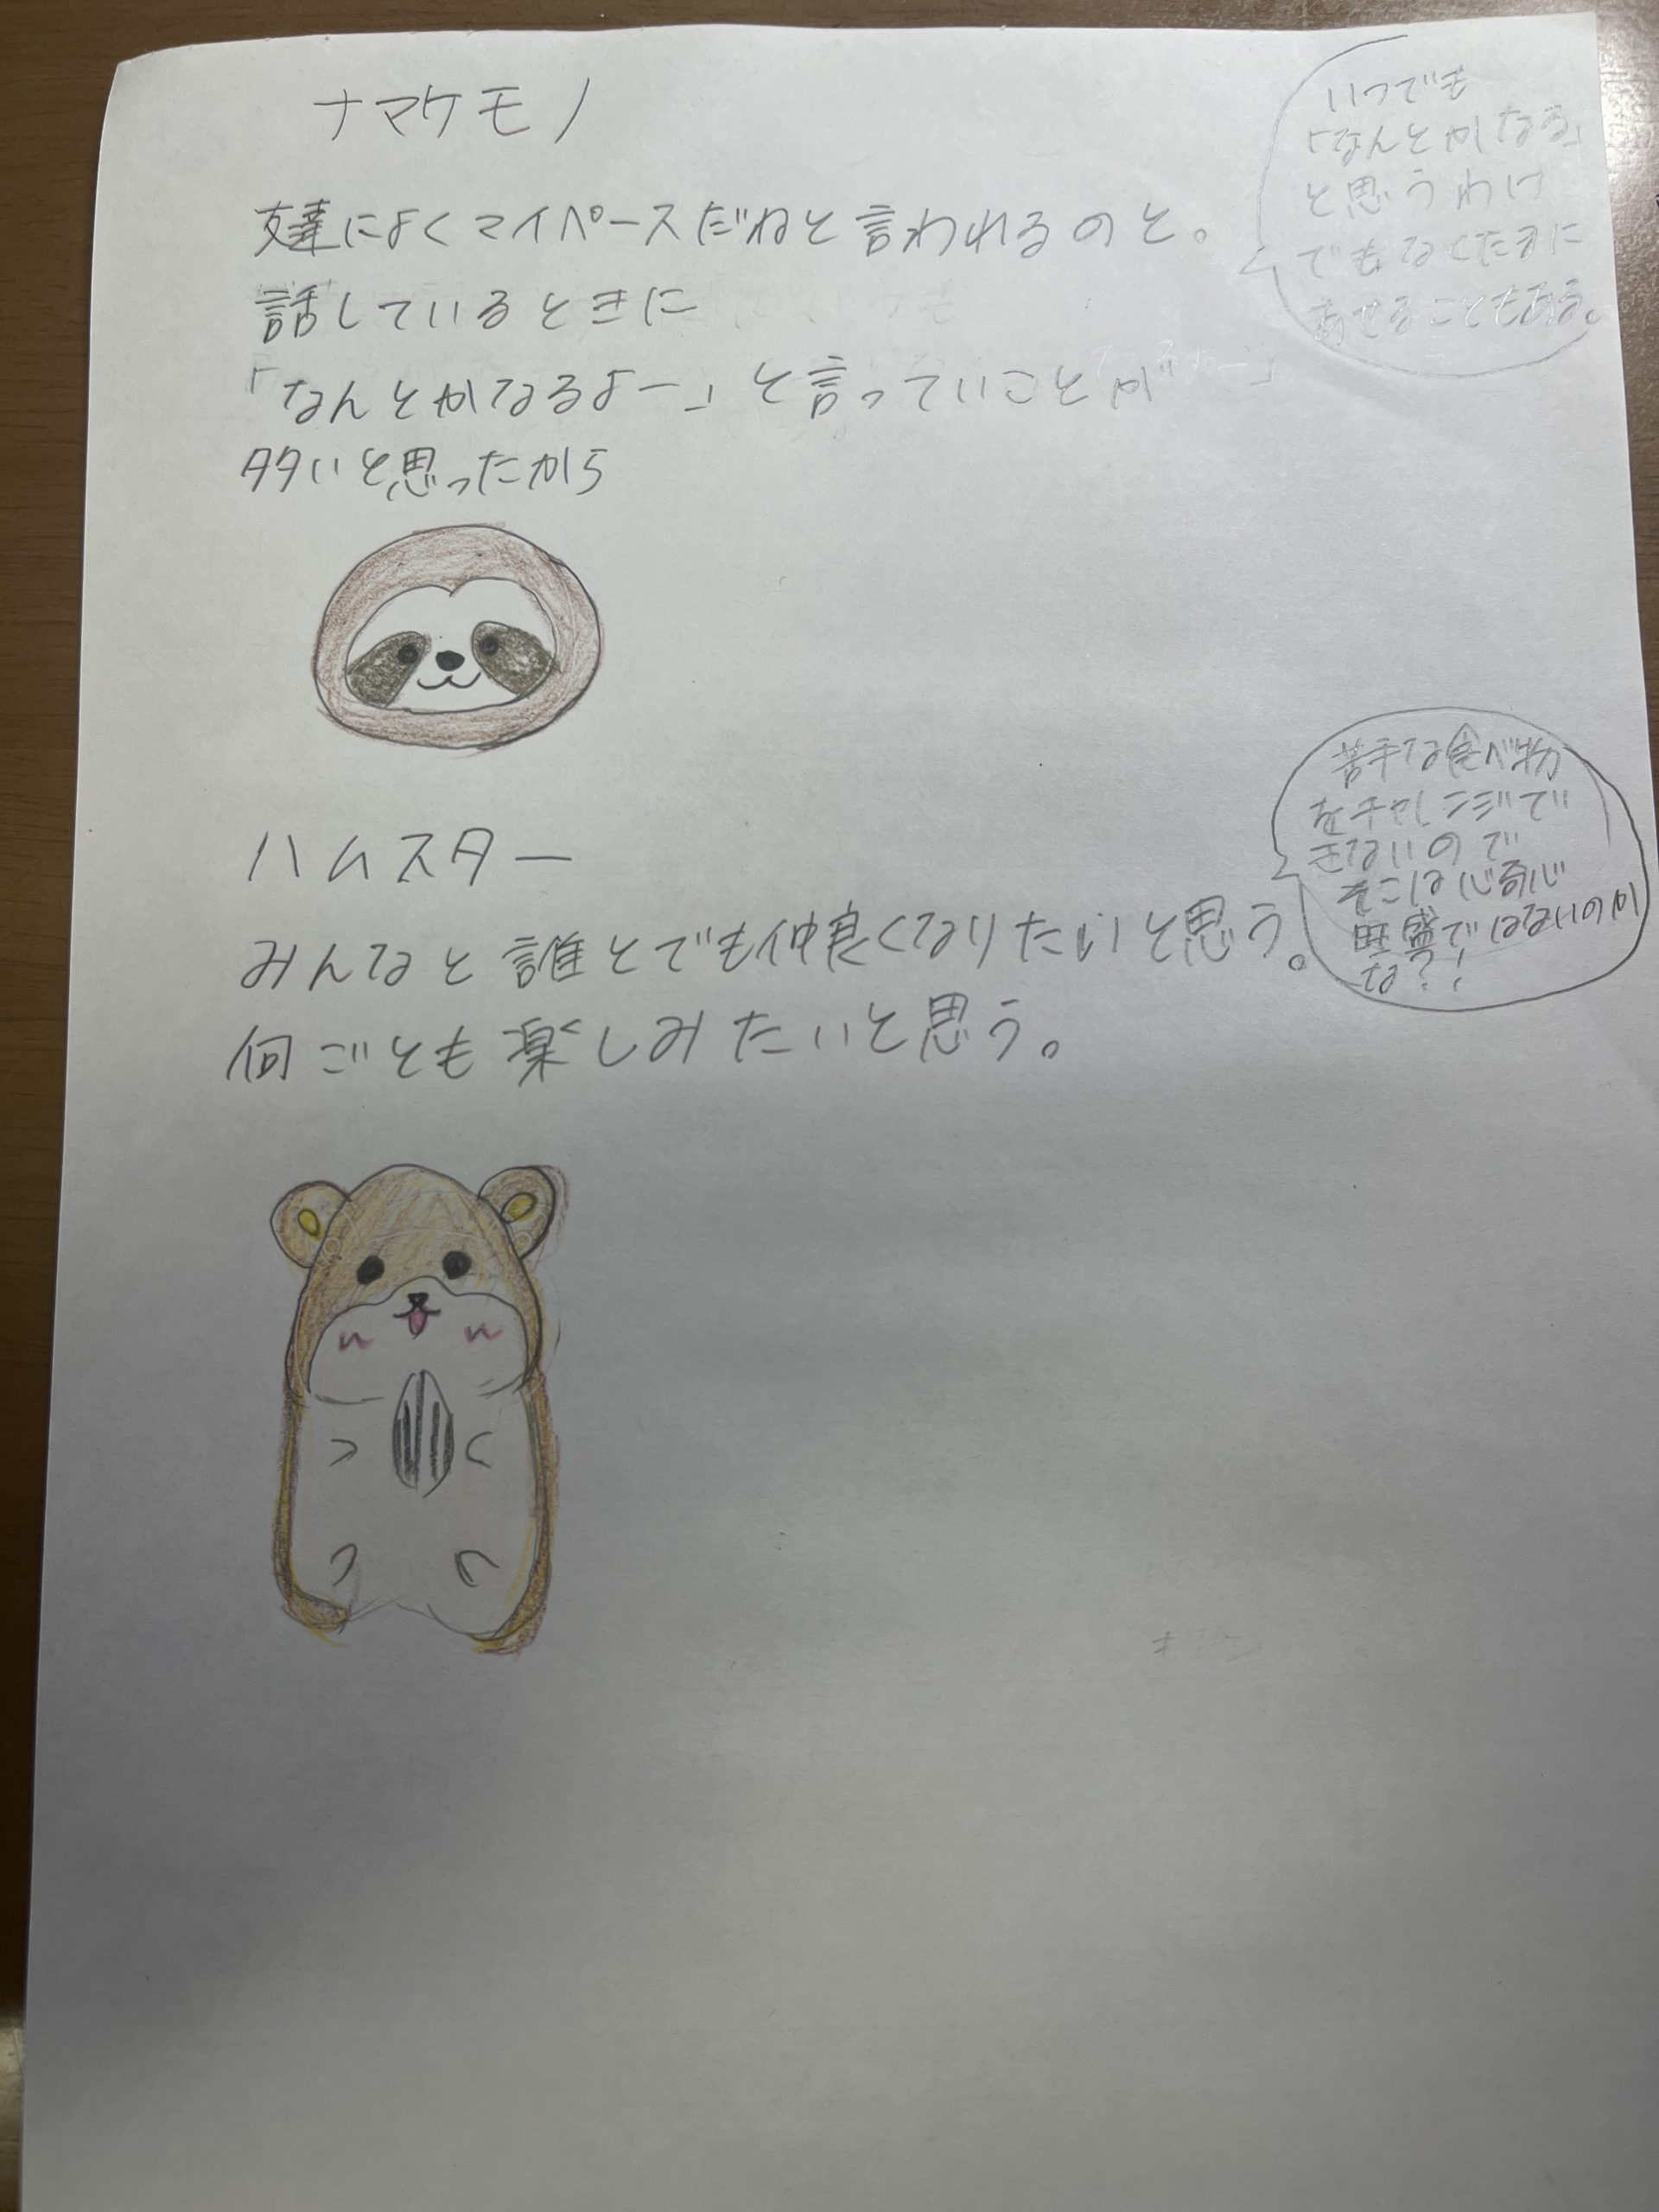 ナマケモノ
友達によくマイペースだねと言われるのと。
話しているときに
「なんとかなるよー」と言っていことが
多いと思ったから
いつでも
「なんとかなる」
と思うわけ
でもなくたまに
あせることもある。
ハムスター
みんなと誰とでも仲良くなりたいと思う。
何ごとも楽しみたいと思う。
苦手な食べ物
をチャレンジで
きないので
そこは心奇心
旺盛ではないのか
な?!